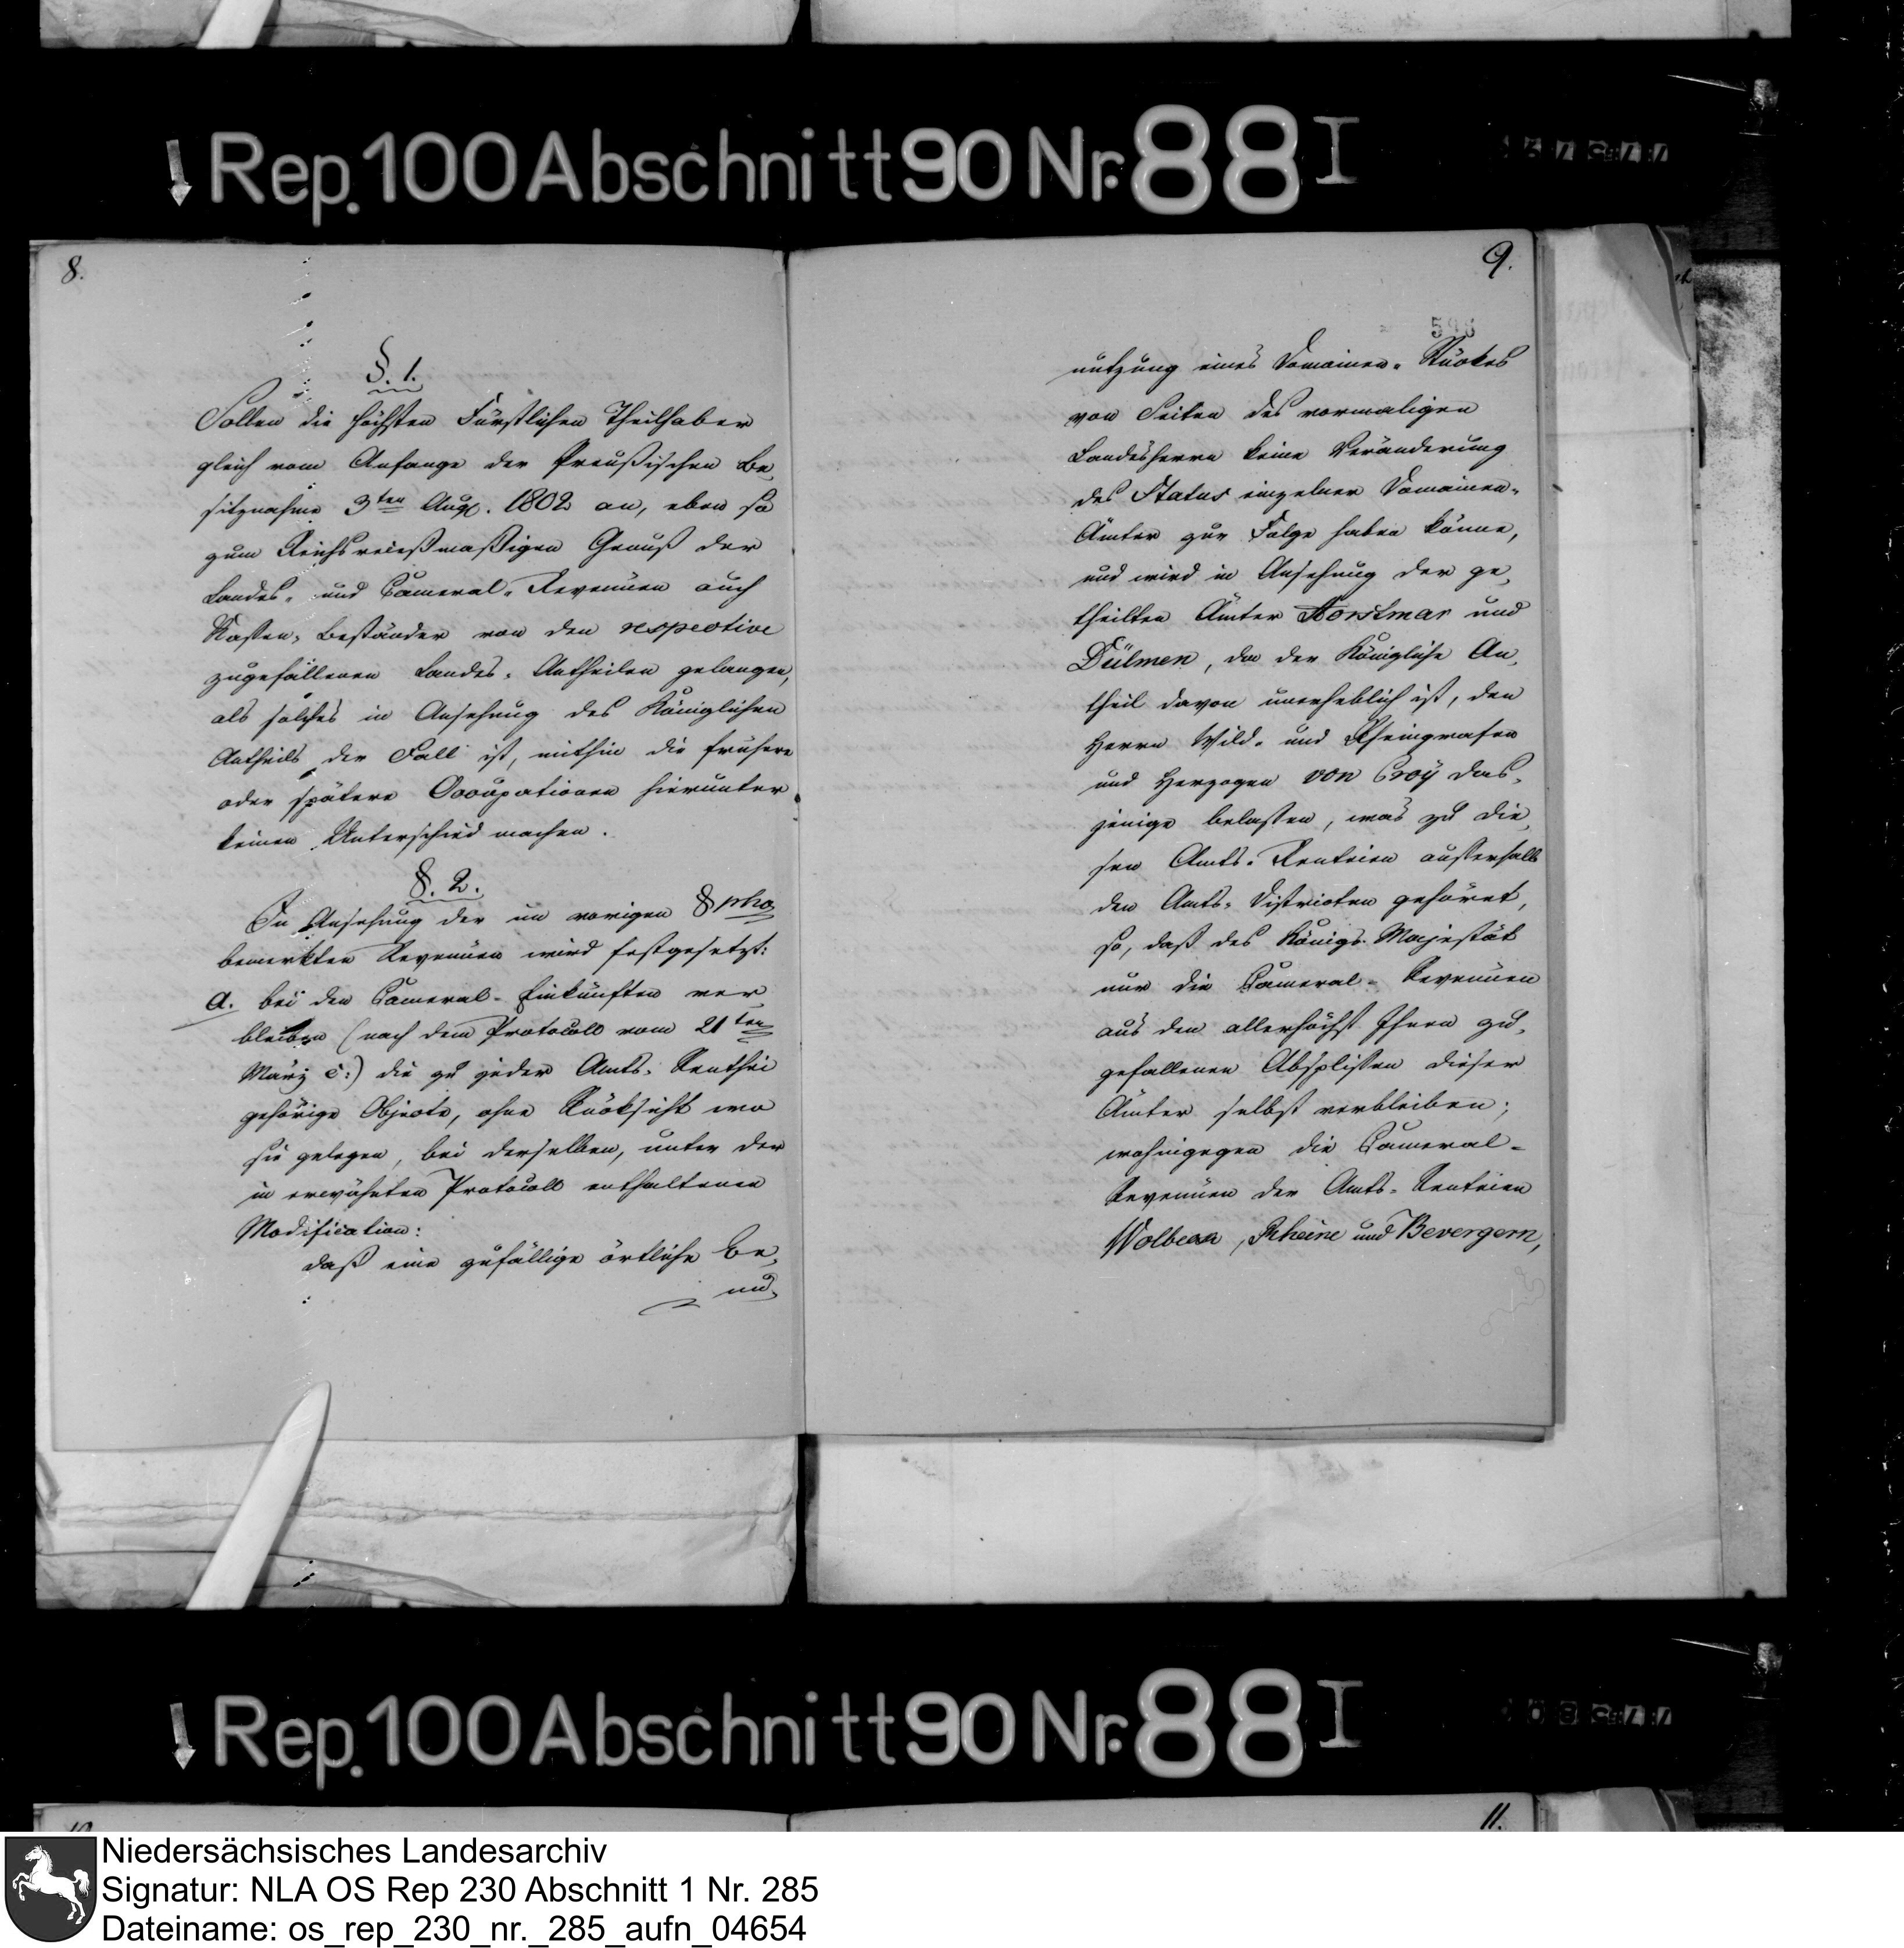 Rep. 100 Abschnitt 90 Nr. 88 I
8.
§. 1.
Sollen die höchsten Fürstlichen Theilhaber
gleich vom Anfange der Preußischen Be,
sitznahme 3ten Aug. 1802 an, eben so
zum Reichsreceßmaßigen Genuß der
Landes- und Cameral-Revenüen auch
Kassen-Beständer von den respective
zugefallenen Landes-Antheilen gelangen,
als solches in Ansehung des Königlichen
Antheils der Fall ist, mithin die frühere
oder spätere Occupationen hierunter
keinen Unterschied machen.
§. 2.
In Ansehung der im vorigen §pho
bemerkten Revenüen wird festgesetzt:
a. bei den Cameral-Einkünften ver
bleiben (nach dem Protocoll vom 21ten
März c:) die zu jeder Amts-Renthei
gehörige Objecte, ohne Rücksicht wo
sie gelegen, bei derselben, unter der
in erwähnten Protocoll enthaltenen
Modification:
daß eine zufällige örtliche Be,
nu,
9.
nutzung eines Domainen-Stückes
von Seiten des vormaligen
Landesherrn keine Veränderung
des Status einzelner Domainen-
Ämter zur Folge haben könne,
und wird in Ansehung der ge,
theilten Ämter Horstmar und
Dülmen, da der Königliche An,
theil davon unerheblich ist, den
Herrn Wild- und Rheingrafen
und Herzogen von Croÿ das-
jenige belassen, was zu die,
sen Amts-Renteien außerhalb
den Amts-Districten gehöret,
so, daß des Königs Majestät
nur die Cameral-Revenüen
aus den allerhöchst Ihnen zu-
gefallenen Absplissen dieser
Ämter selbst verbleiben;
wohingegen die Cameral-
Revenüen der Amts-Renteien
Wolbeck, Rheine und Bevergern,
Rep. 100 Abschnitt 90 Nr. 88 I
11.
Niedersächsisches Landesarchiv
Signatur: NLA OS Rep 230 Abschnitt 1 Nr. 285
Dateiname: os_rep_230_nr._285_aufn_04654